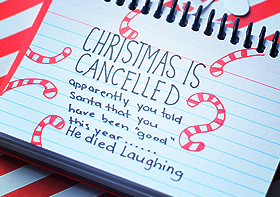 CHRISTMAS IS
CANCELLED
apparently you told
Santa that you
have been "good"
this year......
He died Laughing